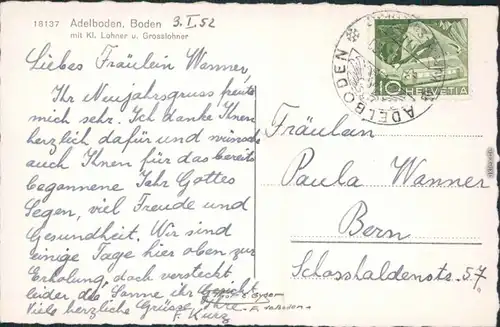 18137 Adelboden, Boden
mit Kl. Lohner u. Grosslohner
3. I. 52
Liebes Fräulein Wanner,
Ihr Neujahrsgruss freute
mich sehr. Ich danke Ihnen
herzlich dafür und wünsche
auch Ihnen für das bereits
begonnene Jahr Gottes
Segen, viel Freude und
Gesundheit. Wir sind
einige Tage hier oben zur
Erholung, doch versteckt
leider die Sonne ihr Gesicht
Viele herzliche Grüsse, Ihre
F. Kurz
ADELBODEN
10 HELVETIA
Fräulein
Paula Wanner
Bern
Schosshaldenstr. 57.